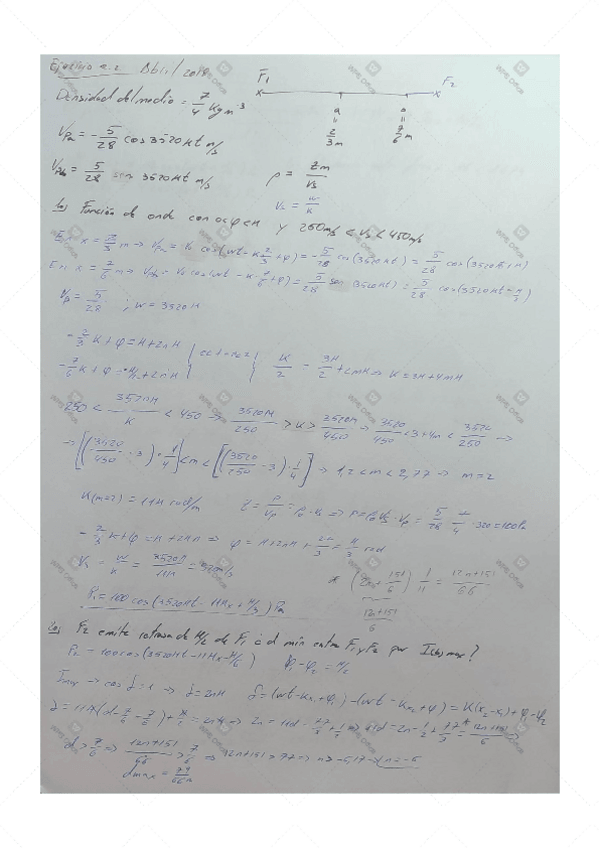 Ejercicio a.2 Abril 2019
F₁ F₂
Densidad del medio = 7/4 Kg m⁻³
a = 2/3 m
b = 7/6 m
Vpa = -5/28 cos 3520πt m/s
Vpb = 5/28 sen 3520πt m/s
ρ = Z m / Vs
Vs = w/k
1o) Función de onda con y 250m/s < Vs < 450m/s
En x = 2/3 m → Vpa = V0 cos(wt - k 2/3 + φ) = -5/28 cos(3520πt) = 5/28 cos(3520πt + π)
En x = 7/6 m → Vpb = V0 cos(wt - k 7/6 + φ) = 5/28 sen 3520πt) = 5/28 cos(3520πt - π/2)
Vp = 5/28 ; w = 3520π
-2/3 k + φ = π + 2nπ
K/2 = 3π/2 + 2mπ ⇒ K = 3π + 4mπ
250 < 3520π/K < 450 → 3520π/250 > K > 3520π/450 → 3520/450 < 3 + 4m < 3520/250 →
→ [(3520/450 - 3) · 1/4] < m < [(3520/250 - 3) · 1/4] → 1,2 < m < 2,77 → m = 2
K(m=2) = 11π rad/m
-2/3 k + φ = π + 2πn → φ = π + 2πn + = π/3 rad
Vs = w/k = 3520π/11π = 320 m/s
* 12n+151/66
12n+151/6
P₁ = 100 cos(3520πt - 11πx + π/3) Pa
2o) F₂ emite retrasada π/2 de F₁ ¿d mín entre F₁ y F₂ por Imax?
P₂ = 100 cos(3520πt - 11πx - π/6) φ₁ - φ₂ = π/2
Imax → cos δ = 1 → δ = 2nπ δ = (wt - kx₁ + φ₁) - (wt - kx₂ + φ) = K(x₂ - x₁) + φ₁ - φ₂
d > 7/6 ⇒ 12n+151/66 > 7/6 ⇒ 12n + 151 > 77 ⇒ n > -6,17 → n = -6